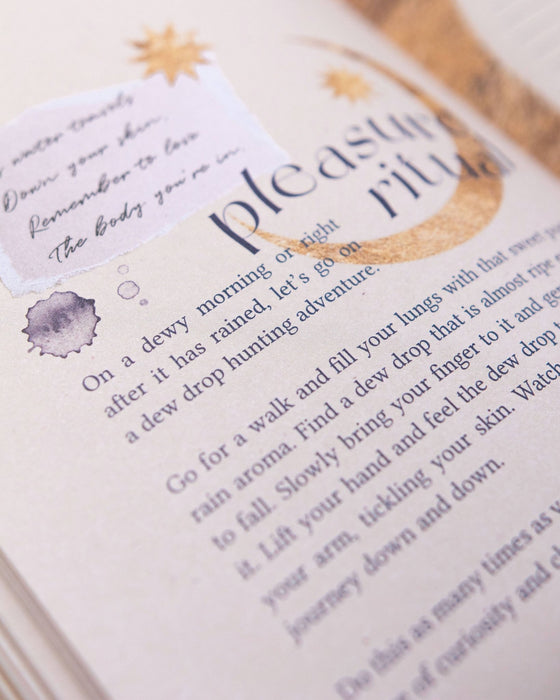 water travels
Down your skin,
Remember to love
The body you're in.
pleasure
ritual
On a dewy morning or right
after it has rained, let's go on
a dew drop hunting adventure.
Go for a walk and fill your lungs with that sweet
rain aroma. Find a dew drop that is almost ripe
to fall. Slowly bring your finger to it and
it. Lift your hand and feel the dew drop
your arm, tickling your skin. Watch
journey down and down.
Do this as many times as
of curiosity and